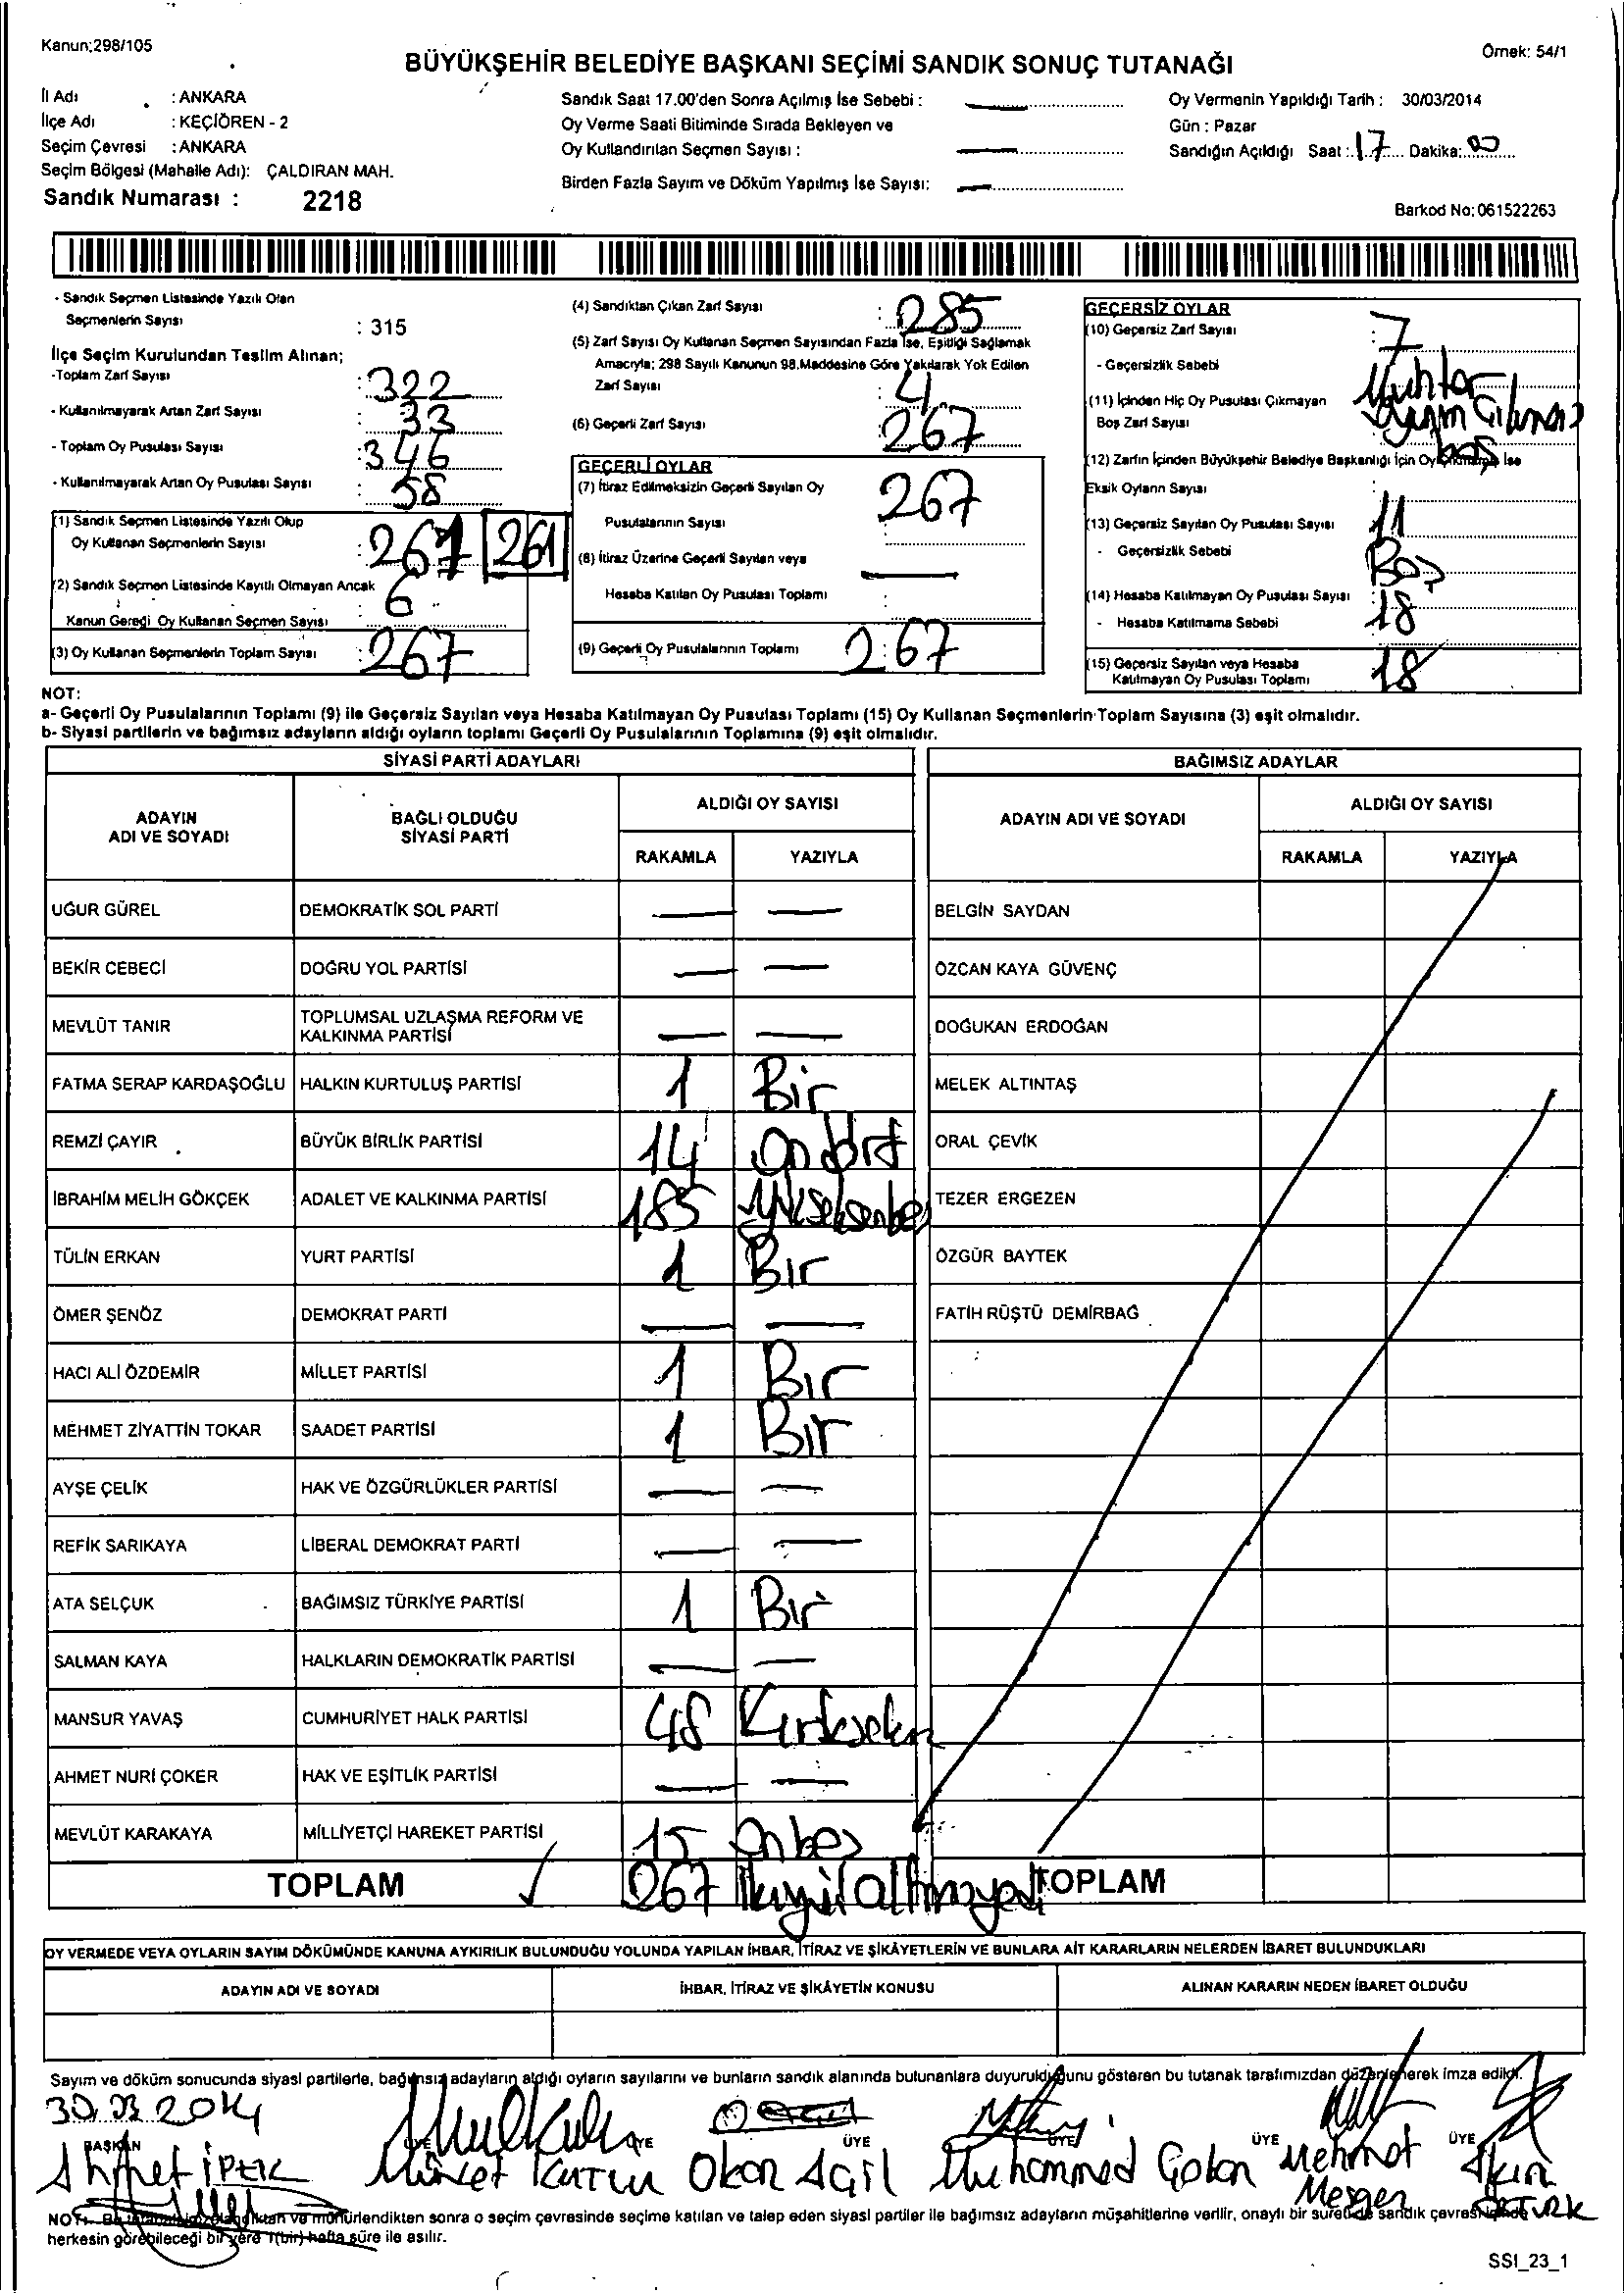 Kanun:298/105
Örnek: 54/1
BÜYÜKŞEHİR BELEDİYE BAŞKANI SEÇİMİ SANDIK SONUÇ TUTANAĞI
İl Adı : ANKARA
İlçe Adı : KEÇİÖREN - 2
Seçim Çevresi : ANKARA
Seçim Bölgesi (Mahalle Adı): ÇALDIRAN MAH.
Sandık Numarası : 2218
Sandık Saat 17.00'den Sonra Açılmış İse Sebebi :
Oy Verme Saati Bitiminde Sırada Bekleyen ve
Oy Kullandırılan Seçmen Sayısı :
Birden Fazla Sayım ve Döküm Yapılmış İse Sayısı:
Oy Vermenin Yapıldığı Tarih : 30/03/2014
Gün : Pazar
Sandığın Açıldığı Saat : 17 Dakika: 00
Barkod No: 061522263
- Sandık Seçmen Listesinde Yazılı Olan
Seçmenlerin Sayısı : 315
İlçe Seçim Kurulundan Teslim Alınan;
-Toplam Zarf Sayısı : 322
- Kullanılmayarak Artan Zarf Sayısı : 33
- Toplam Oy Pusulası Sayısı : 346
- Kullanılmayarak Artan Oy Pusulası Sayısı : 58
(1) Sandık Seçmen Listesinde Yazılı Olup
Oy Kullanan Seçmenlerin Sayısı : 267 261
(2) Sandık Seçmen Listesinde Kayıtlı Olmayan Ancak
Kanun Gereği Oy Kullanan Seçmen Sayısı : 6
(3) Oy Kullanan Seçmenlerin Toplam Sayısı : 267
(4) Sandıktan Çıkan Zarf Sayısı : 285
(5) Zarf Sayısı Oy Kullanan Seçmen Sayısından Fazla İse, Eşitliği Sağlamak
Amacıyla; 298 Sayılı Kanunun 98.Maddesine Göre Yakılarak Yok Edilen
Zarf Sayısı : 4
(6) Geçerli Zarf Sayısı : 267
GEÇERLİ OYLAR
(7) İtiraz Edilmeksizin Geçerli Sayılan Oy
Pusulalarının Sayısı 267
(8) İtiraz Üzerine Geçerli Sayılan veya
Hesaba Katılan Oy Pusulası Toplamı :
(9) Geçerli Oy Pusulalarının Toplamı 267
GEÇERSİZ OYLAR
(10) Geçersiz Zarf Sayısı : 7
- Geçersizlik Sebebi Muhtar
(11) İçinden Hiç Oy Pusulası Çıkmayan
Boş Zarf Sayısı
boş
(12) Zarfın İçinden Büyükşehir Belediye Başkanlığı İçin Oy Çıkmamış İse
Eksik Oyların Sayısı
(13) Geçersiz Sayılan Oy Pusulası Sayısı 11
- Geçersizlik Sebebi Boş
(14) Hesaba Katılmayan Oy Pusulası Sayısı 18
- Hesaba Katılmama Sebebi
(15) Geçersiz Sayılan veya Hesaba
Katılmayan Oy Pusulası Toplamı 18
NOT:
a- Geçerli Oy Pusulalarının Toplamı (9) ile Geçersiz Sayılan veya Hesaba Katılmayan Oy Pusulası Toplamı (15) Oy Kullanan Seçmenlerin Toplam Sayısına (3) eşit olmalıdır.
b- Siyasi partilerin ve bağımsız adayların aldığı oyların toplamı Geçerli Oy Pusulalarının Toplamına (9) eşit olmalıdır.
SİYASİ PARTİ ADAYLARI
ADAYIN ADI VE SOYADI
BAĞLI OLDUĞU SİYASİ PARTİ
ALDIĞI OY SAYISI
RAKAMLA YAZIYLA
UĞUR GÜREL DEMOKRATİK SOL PARTİ
BEKİR CEBECİ DOĞRU YOL PARTİSİ
MEVLÜT TANIR TOPLUMSAL UZLAŞMA REFORM VE KALKINMA PARTİSİ
FATMA SERAP KARDAŞOĞLU HALKIN KURTULUŞ PARTİSİ 1 Bir
REMZİ ÇAYIR BÜYÜK BİRLİK PARTİSİ 14 Ondört
İBRAHİM MELİH GÖKÇEK ADALET VE KALKINMA PARTİSİ 185 Yükseksenbeş
TÜLİN ERKAN YURT PARTİSİ 1 Bir
ÖMER ŞENÖZ DEMOKRAT PARTİ
HACI ALİ ÖZDEMİR MİLLET PARTİSİ 1 Bir
MEHMET ZİYATTİN TOKAR SAADET PARTİSİ 1 Bir
AYŞE ÇELİK HAK VE ÖZGÜRLÜKLER PARTİSİ
REFİK SARIKAYA LİBERAL DEMOKRAT PARTİ
ATA SELÇUK BAĞIMSIZ TÜRKİYE PARTİSİ 1 Bir
SALMAN KAYA HALKLARIN DEMOKRATİK PARTİSİ
MANSUR YAVAŞ CUMHURİYET HALK PARTİSİ 48 Kırksekiz
AHMET NURİ ÇOKER HAK VE EŞİTLİK PARTİSİ
MEVLÜT KARAKAYA MİLLİYETÇİ HAREKET PARTİSİ 15 Onbeş
TOPLAM 267 İkiyüzaltmışyedi
BAĞIMSIZ ADAYLAR
ADAYIN ADI VE SOYADI
ALDIĞI OY SAYISI
RAKAMLA YAZIYLA
BELGİN SAYDAN
ÖZCAN KAYA GÜVENÇ
DOĞUKAN ERDOĞAN
MELEK ALTINTAŞ
ORAL ÇEVİK
TEZER ERGEZEN
ÖZGÜR BAYTEK
FATİH RÜŞTÜ DEMİRBAĞ
TOPLAM
OY VERMEDE VEYA OYLARIN SAYIM DÖKÜMÜNDE KANUNA AYKIRILIK BULUNDUĞU YOLUNDA YAPILAN İHBAR, İTİRAZ VE ŞİKÂYETLERİN VE BUNLARA AİT KARARLARIN NELERDEN İBARET BULUNDUKLARI
ADAYIN ADI VE SOYADI İHBAR, İTİRAZ VE ŞİKÂYETİN KONUSU ALINAN KARARIN NEDEN İBARET OLDUĞU
Sayım ve döküm sonucunda siyasi partilerle, bağımsız adayların aldığı oyların sayılarını ve bunların sandık alanında bulunanlara duyurulduğunu gösteren bu tutanak tarafımızdan düzenlenerek imza edildi.
30.03.2014
BAŞKAN ÜYE ÜYE ÜYE ÜYE ÜYE
Ahmet İPEK Okan Açil Muhammed Çoban Mehmet Mesgen Akın ÖZTÜRK
NOT: Bu tutanak imzalandıktan ve mühürlendikten sonra o seçim çevresinde seçime katılan ve talep eden siyasi partiler ile bağımsız adayların müşahitlerine verilir, onaylı bir suretide sandık çevresi içinde
herkesin görebileceği bir yere 1(bir) hafta süre ile asılır.
SSI_23_1